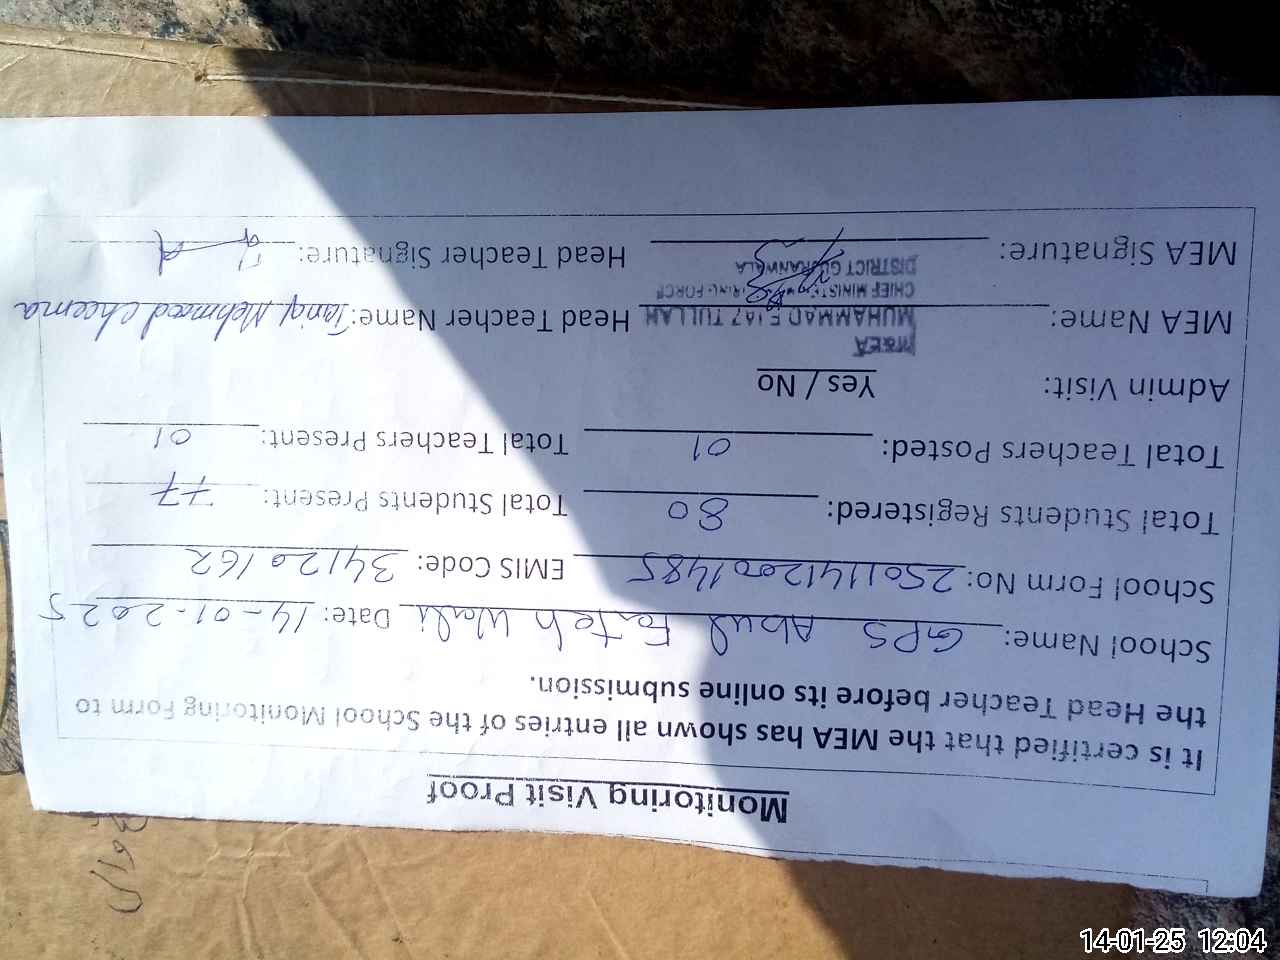 Monitoring Visit Proof
It is certified that the MEA has shown all entries of the School Monitoring Form to
the Head Teacher before its online submission.
School Name: GPS Abul Fateh Wali Date: 14-01-2025
School Form No: 25011412001485 EMIS Code: 34120162
Total Students Registered: 80 Total Students Present: 77
Total Teachers Posted: 01 Total Teachers Present: 01
Admin Visit: Yes / No
M&EA
MEA Name: MUHAMMAD EJAZ TULLAH Head Teacher Name: Tariq Mehmood Cheema
CHIEF MINISTER FORCE
DISTRICT GUJRANWALA
MEA Signature: Head Teacher Signature:
14-01-25 12:04